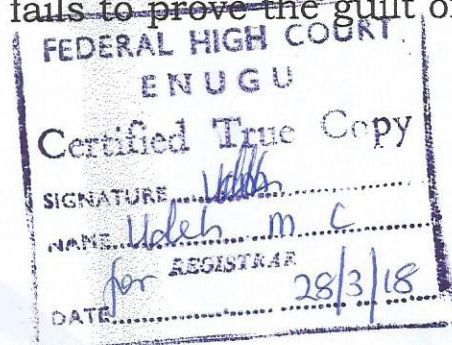 fails to prove the guilt of
FEDERAL HIGH COURT
ENUGU
Certified True Copy
SIGNATURE
NAME Udeh M C
for REGISTRAR
DATE 28/3/18